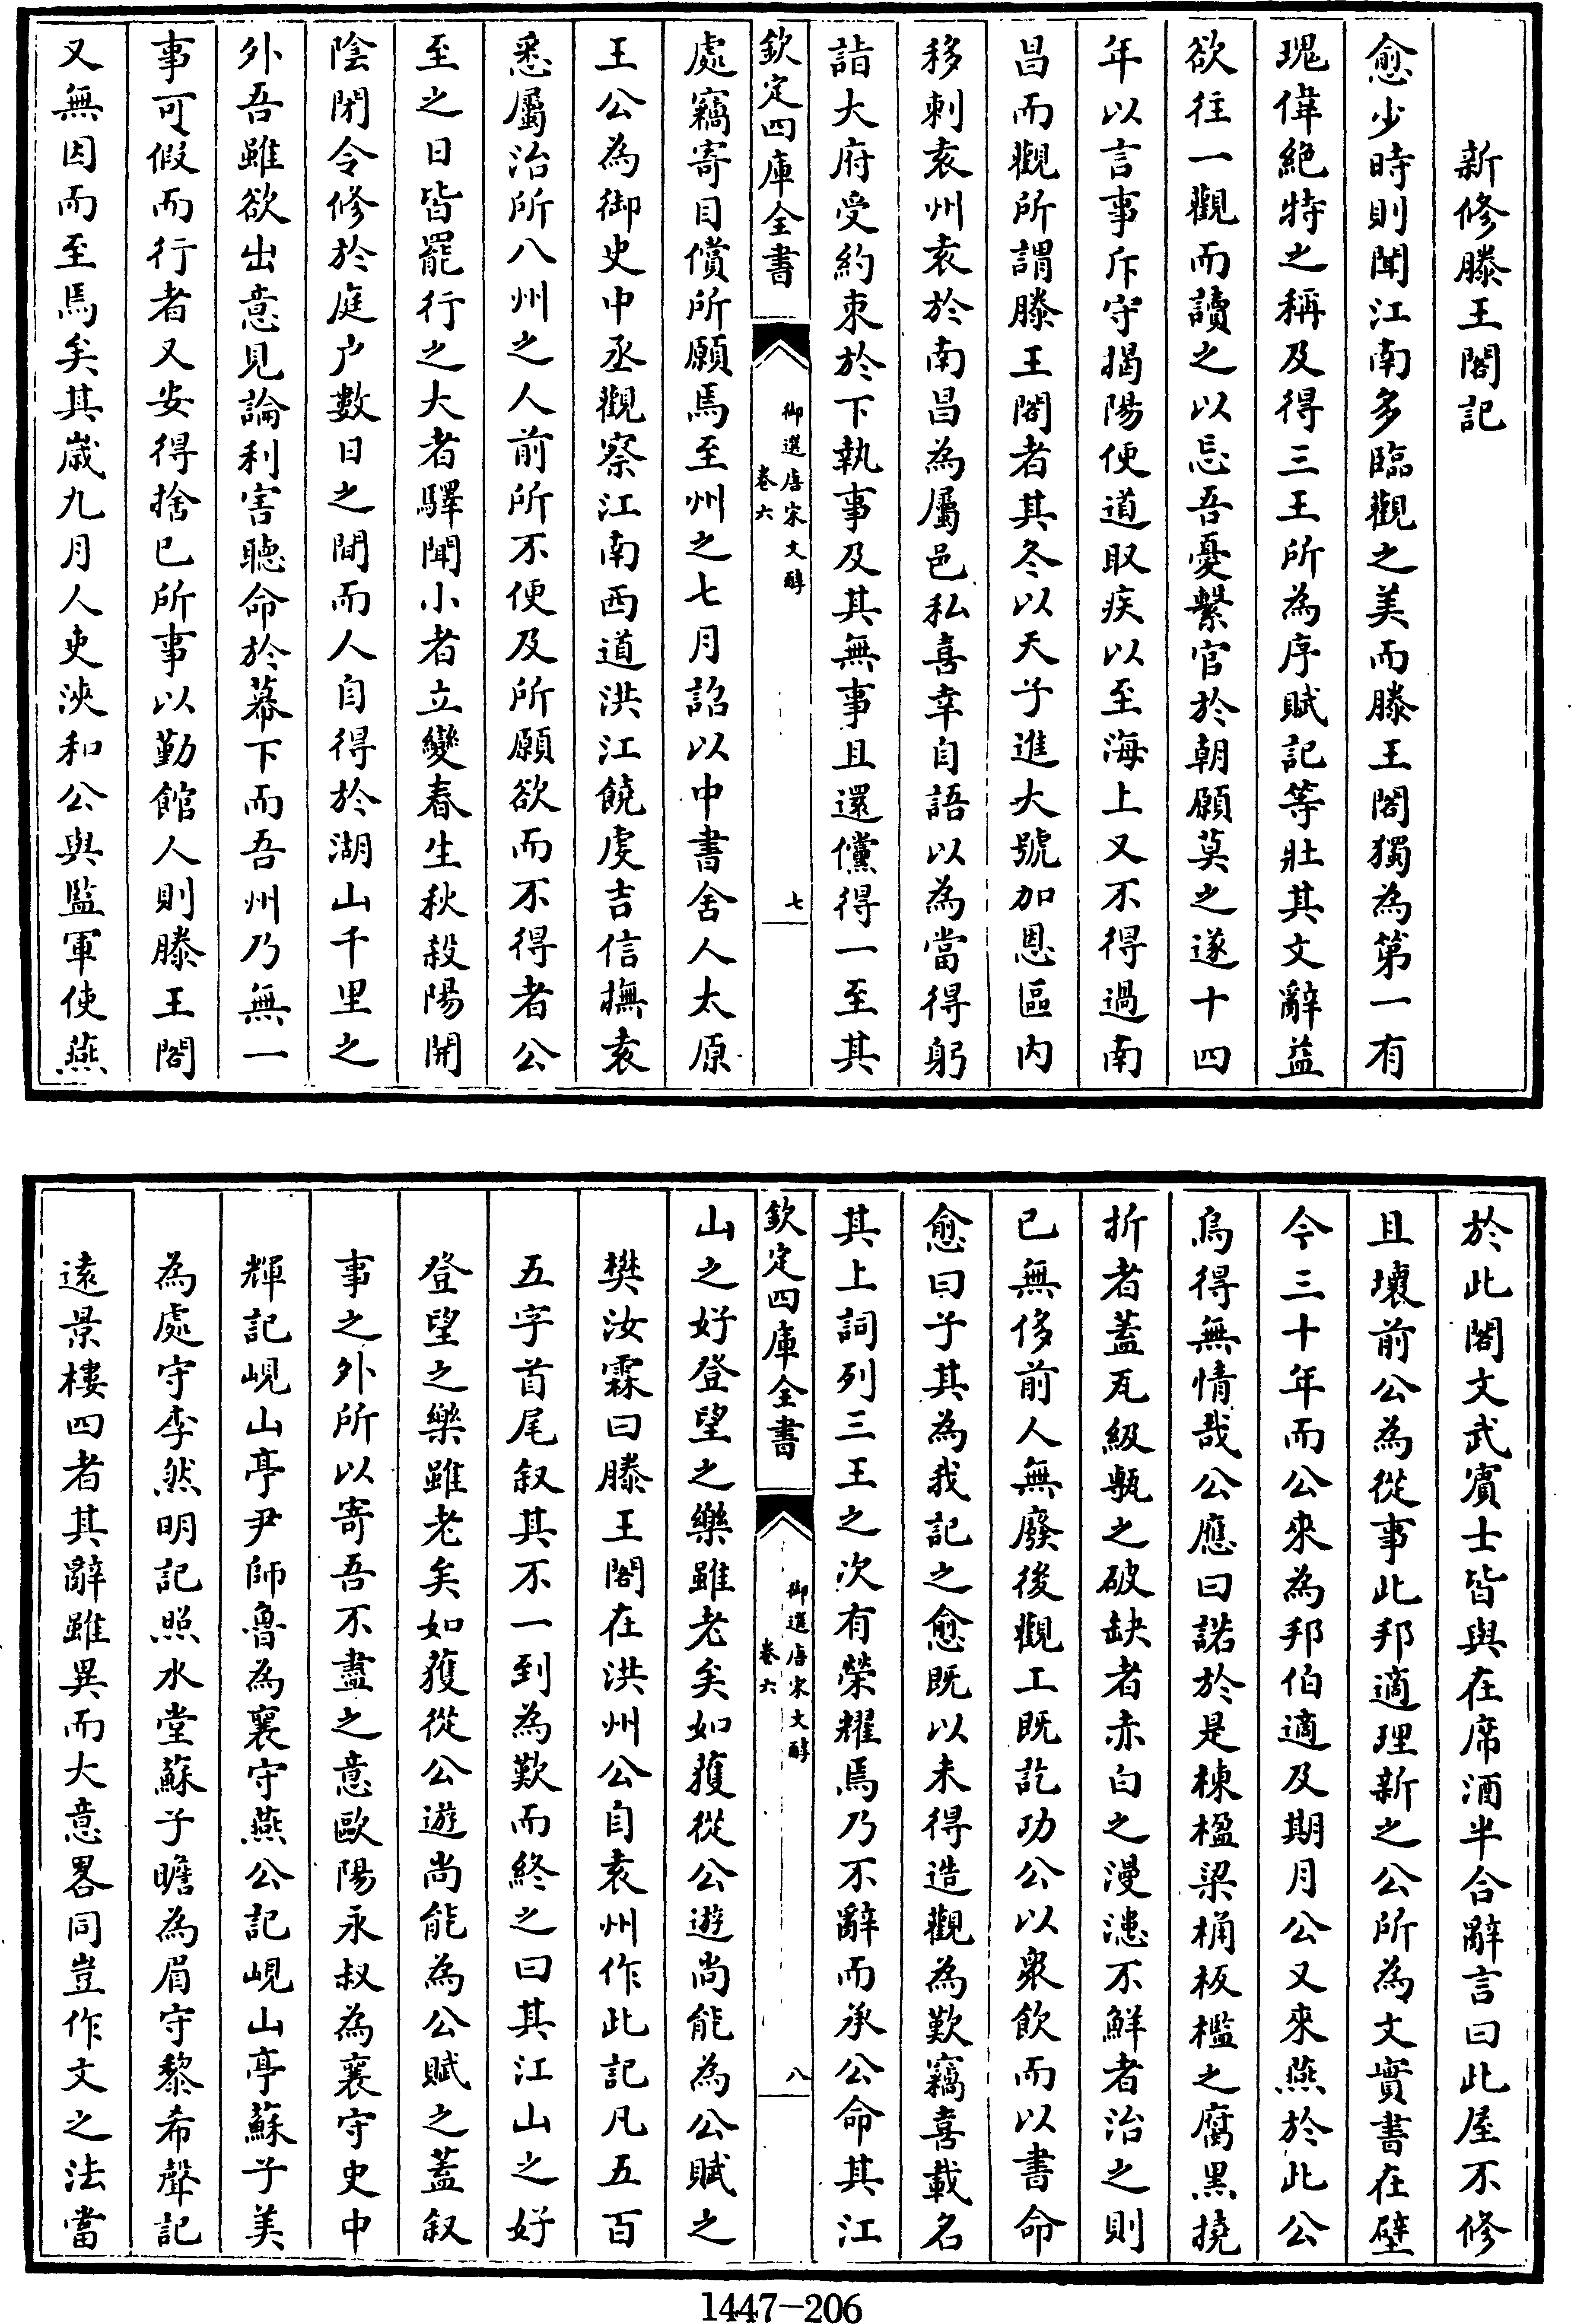 新修滕王閣記
愈少時則聞江南多臨觀之美而滕王閣獨為第一有
瑰偉絶特之稱及得三王所為序賦記等壯其文辭益
欲往一觀而讀之以忘吾憂繫官於朝願莫之遂十四
年以言事斥守揭陽便道取疾以至海上又不得過南
昌而觀所謂滕王閣者其冬以天子進大號加恩區内
移刺袁州袁於南昌為屬邑私喜幸自語以為當得躬
詣大府受約束於下執事及其無事且還儻得一至其
欽定四庫全書
御選唐宋文醇
卷六
七
處竊寄目償所願焉至州之七月詔以中書舍人太原
王公為御史中丞觀察江南西道洪江饒虔吉信撫袁
悉屬治所八州之人前所不便及所願欲而不得者公
至之日皆罷行之大者驛聞小者立變春生秋殺陽開
陰閉令修於庭户數日之間而人自得於湖山千里之
外吾雖欲出意見論利害聽命於幕下而吾州乃無一
事可假而行者又安得捨已所事以勤館人則滕王閣
又無因而至焉矣其嵗九月人吏浹和公與監軍使燕
於此閣文武賓士皆與在席酒半合辭言曰此屋不修
且壞前公為從事此邦適理新之公所為文實書在壁
今三十年而公來為邦伯適及期月公又來燕於此公
烏得無情哉公應曰諾於是棟楹梁桷板檻之腐黑撓
折者蓋瓦級甎之破缺者赤白之漫漶不鮮者治之則
已無侈前人無廢後觀工既訖功公以衆飲而以書命
愈曰子其為我記之愈既以未得造觀為歎竊喜載名
其上詞列三王之次有榮耀焉乃不辭而承公命其江
欽定四庫全書
御選唐宋文醇
卷六
八
山之好登望之樂雖老矣如獲從公遊尚能為公賦之
樊汝霖曰滕王閣在洪州公自袁州作此記凡五百
五字首尾叙其不一到為歎而終之曰其江山之好
登望之樂雖老矣如獲從公遊尚能為公賦之蓋叙
事之外所以寄吾不盡之意歐陽永叔為襄守史中
輝記峴山亭尹師魯為襄守燕公記峴山亭蘇子美
為處守李然明記照水堂蘇子瞻為眉守黎希聲記
遠景樓四者其辭雖異而大意畧同豈作文之法當
1447-206